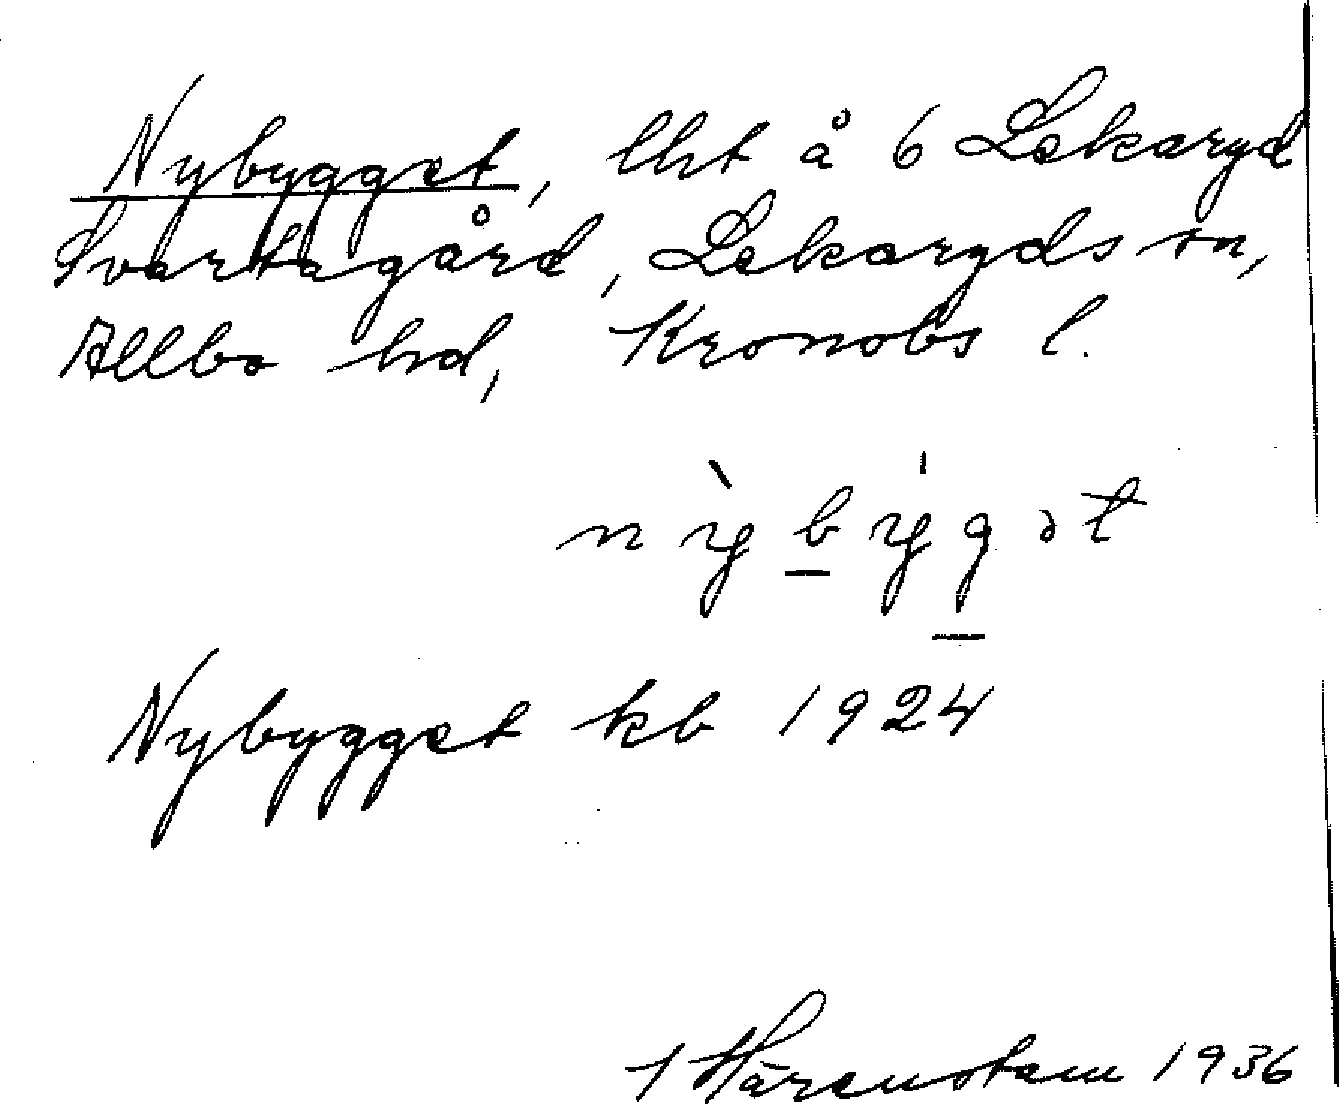 Nybygget, lht å 6 Lekaryd
Svartagård, Lekaryds sn,
Allbo hd, Kronobs l.
nỳbýgət
Nybygget kb 1924
Härenstam 1936